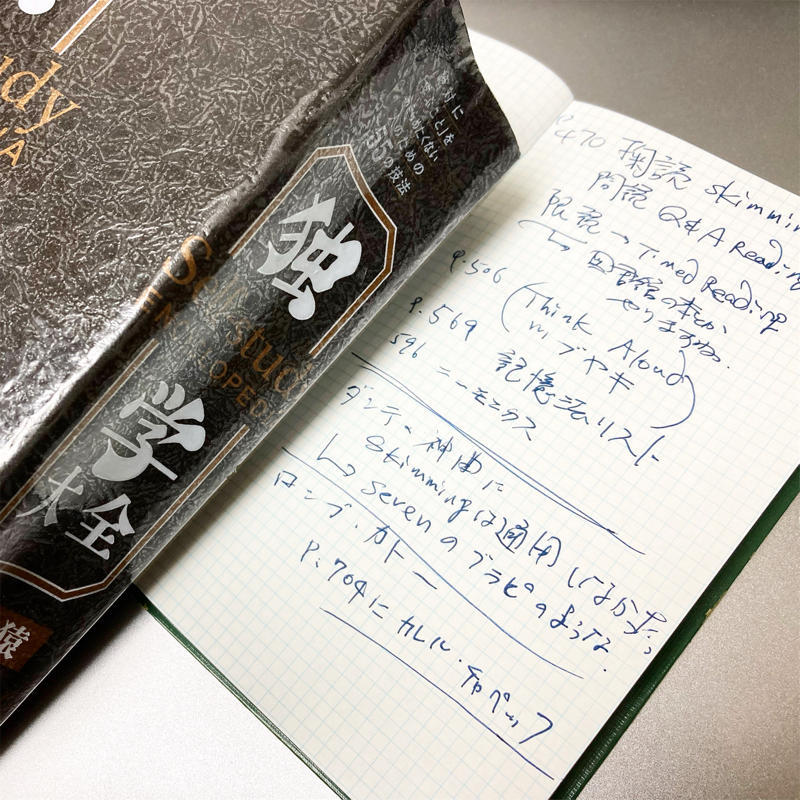 udy
IA
絶対に
「学ぶこと」を
あきらめたくない
人のための
55の技法
独
学
大全
Self-study
ENCYCLOPEDIA
猿
P.470 掬読 skimmin
問読 Q&A Reading
限読→Timed Reading
↳図書館の本とか
やりますね.
P.506 (Think Aloud
ツブヤキ)
P.569 記憶法リスト
596 ニーモニクス
ダンテ・神曲に
skimmingは適用しなかった。
↳ sevenのブラピのような.
ロンブ・カトー
P.704にカレル・チャペック